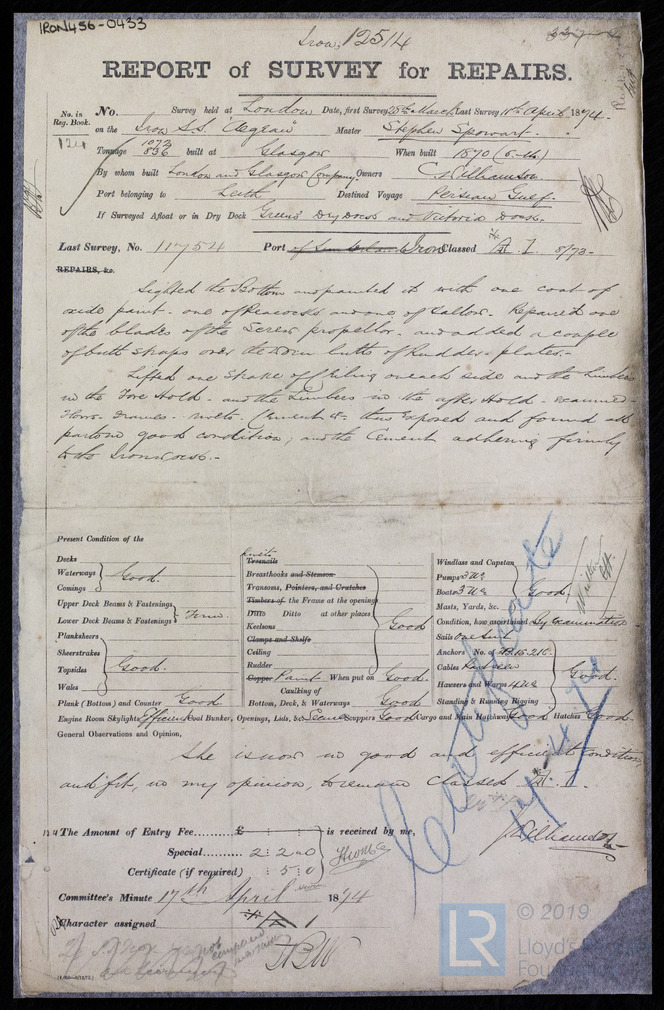 IRON456-0433
Iron, 12514
REPORT of SURVEY for REPAIRS.
No. in Reg. Book. No. Survey held at London Date, first Survey 25th March Last Survey 11th April 1874.
124 on the Iron S.S. "Aegean" Master Stephen Spowart.
Tonnage 1073 836 built at Glasgow When built 1870
By whom built London and Glasgow Company. Owners C. Williamson
Port belonging to Leith Destined Voyage Persian Gulf.
If Surveyed Afloat or in Dry Dock Green's Dry Dock and Victoria Dock.
Last Survey, No. 11754 Port Iron Classed A. 1. 8/73.
REPAIRS, &c.
Sighted the Bottom and painted it with one coat of
oxide paint. one of Peacocks and one of Tallow. Repaired one
of the blades of the Screw propellor. and added a couple
of butt straps over the butts of Rudder plates.
Lifted one Strake of Ceiling on each side and the Limbers
in the Fore Hold. and the Limbers in the after Hold. examined
Floors. Frames. rivets. Cement &c. then exposed and found all
parts in good condition; and the Cement adhering firmly
to the Ironwork.
Present Condition of the
Decks
Waterways Good.
Comings
Upper Deck Beams & Fastenings
Lower Deck Beams & Fastenings
Planksheers
Sheerstrakes
Topsides Good.
Wales
Plank (Bottom) and Counter Good
rivets
Treenails
Breasthooks and Stemson
Transoms, Pointers, and Crutches
Timbers of the Frame at the openings
Ditto Ditto at other places
Keelsons Good
Clamps and Shelfs
Ceiling
Rudder
Copper Paint When put on Good.
Caulking of
Bottom, Deck, & Waterways Good
Windlass and Capstan
Pumps
Boats Good.
Masts, Yards, &c.
Condition, how ascertained By examination
Sails One Suit
Anchors No. of
Cables
Hawsers and Warps Good.
Standing & Running Rigging
Engine Room Skylights Efficient Coal Bunker, Openings, Lids, &c Secure Scuppers Good Cargo and Main Hatchways Good Hatches Good
General Observations and Opinion,
She is now in good and efficient condition,
and fit, in my opinion, to remain classed A. 1.
Certificate
The Amount of Entry Fee......... £ is received by me,
Special......... 2 : 2 : 0
Certificate (if required) : 5 : 0
J Williamson
Committee's Minute 17th April 1874
Character assigned A 1
© 2019
LR
Lloyd's
Foun